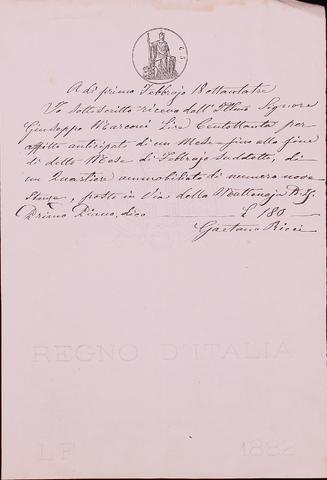 A di primo Febbrajo 18ottantatre
Io Sottoscritto ricevo dall' Illmo Signore
Giuseppe Marconi Lire Centottanta per
affitto anticipato di un Mese fino alla fine
di detto Mese di Febbrajo suddetto, di
un Quartiere ammobiliato di numero nove
Stanze, posto in Via della
Primo Piano, dico £ 180
Gaetano Ricci
REGNO D'ITALIA
L F 1882